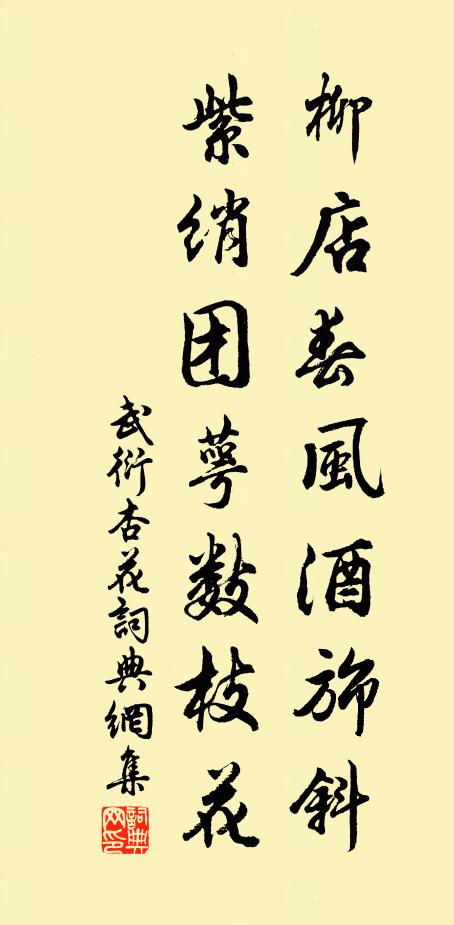 柳店春風酒旆斜
紫綃团萼數枝花
武衍杏花詞典網集
詞典网印